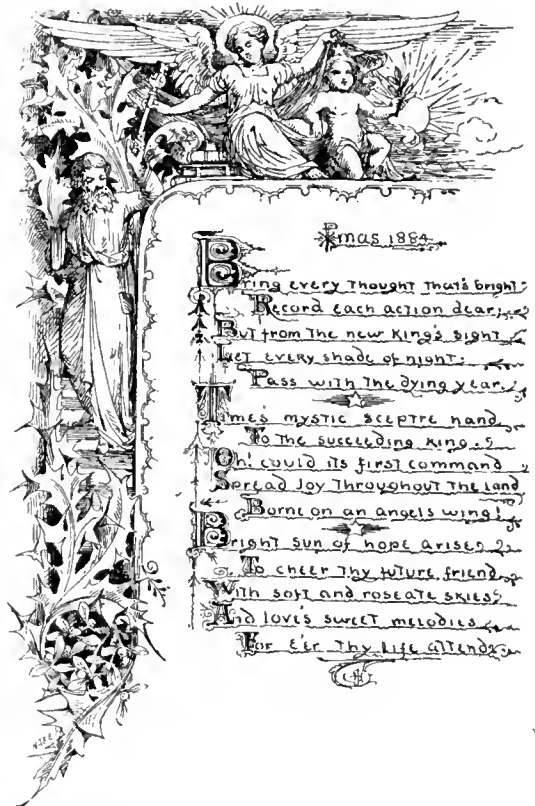 Xmas 1884
Bring every thought that's bright
Record each action dear;
But from the new King's sight
Let every shade of night;
Pass with the dying year.
Time's mystic sceptre hand
To the succeeding King:
Oh! could its first command
Spread Joy throughout the land
Borne on an angels wing!
Bright sun of hope arise
To cheer thy future friend
With soft and roseate skies
And love's sweet melodies
For e'er thy life attend